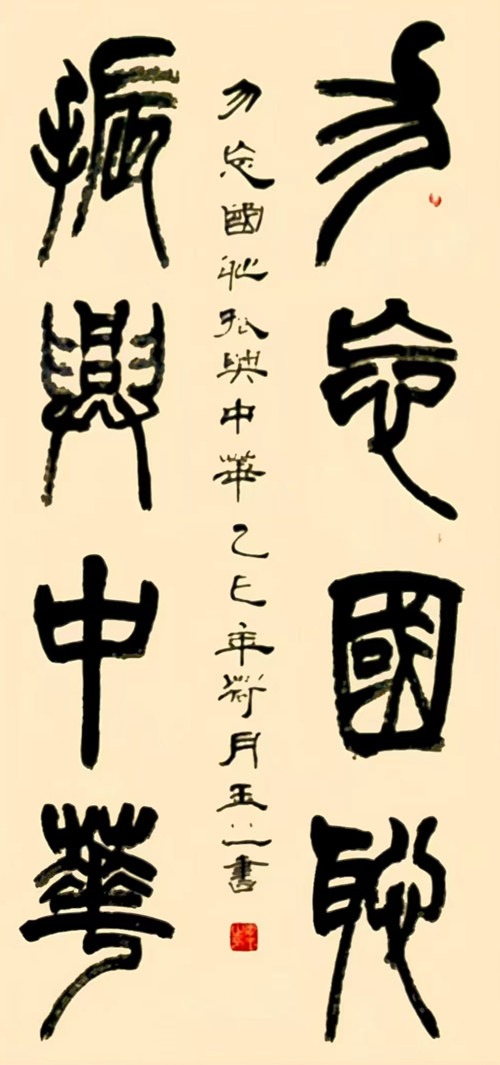 勿忘國耻
振興中華
勿忘國耻振興中華乙巳年月玉書